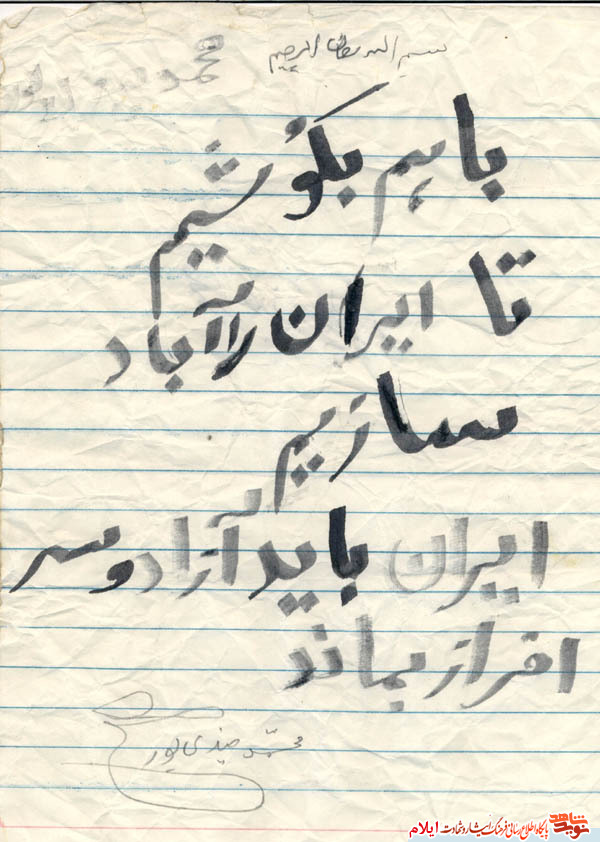 بسم الله الرحمن الرحیم
باهم بکوشیم
تا ایران را آباد
سازیم
ایران باید آزاد و سر
افراز بماند
محمد
نوید شاهد
پایگاه اطلاع رسانی فرهنگ ایثار و شهادت ایلام